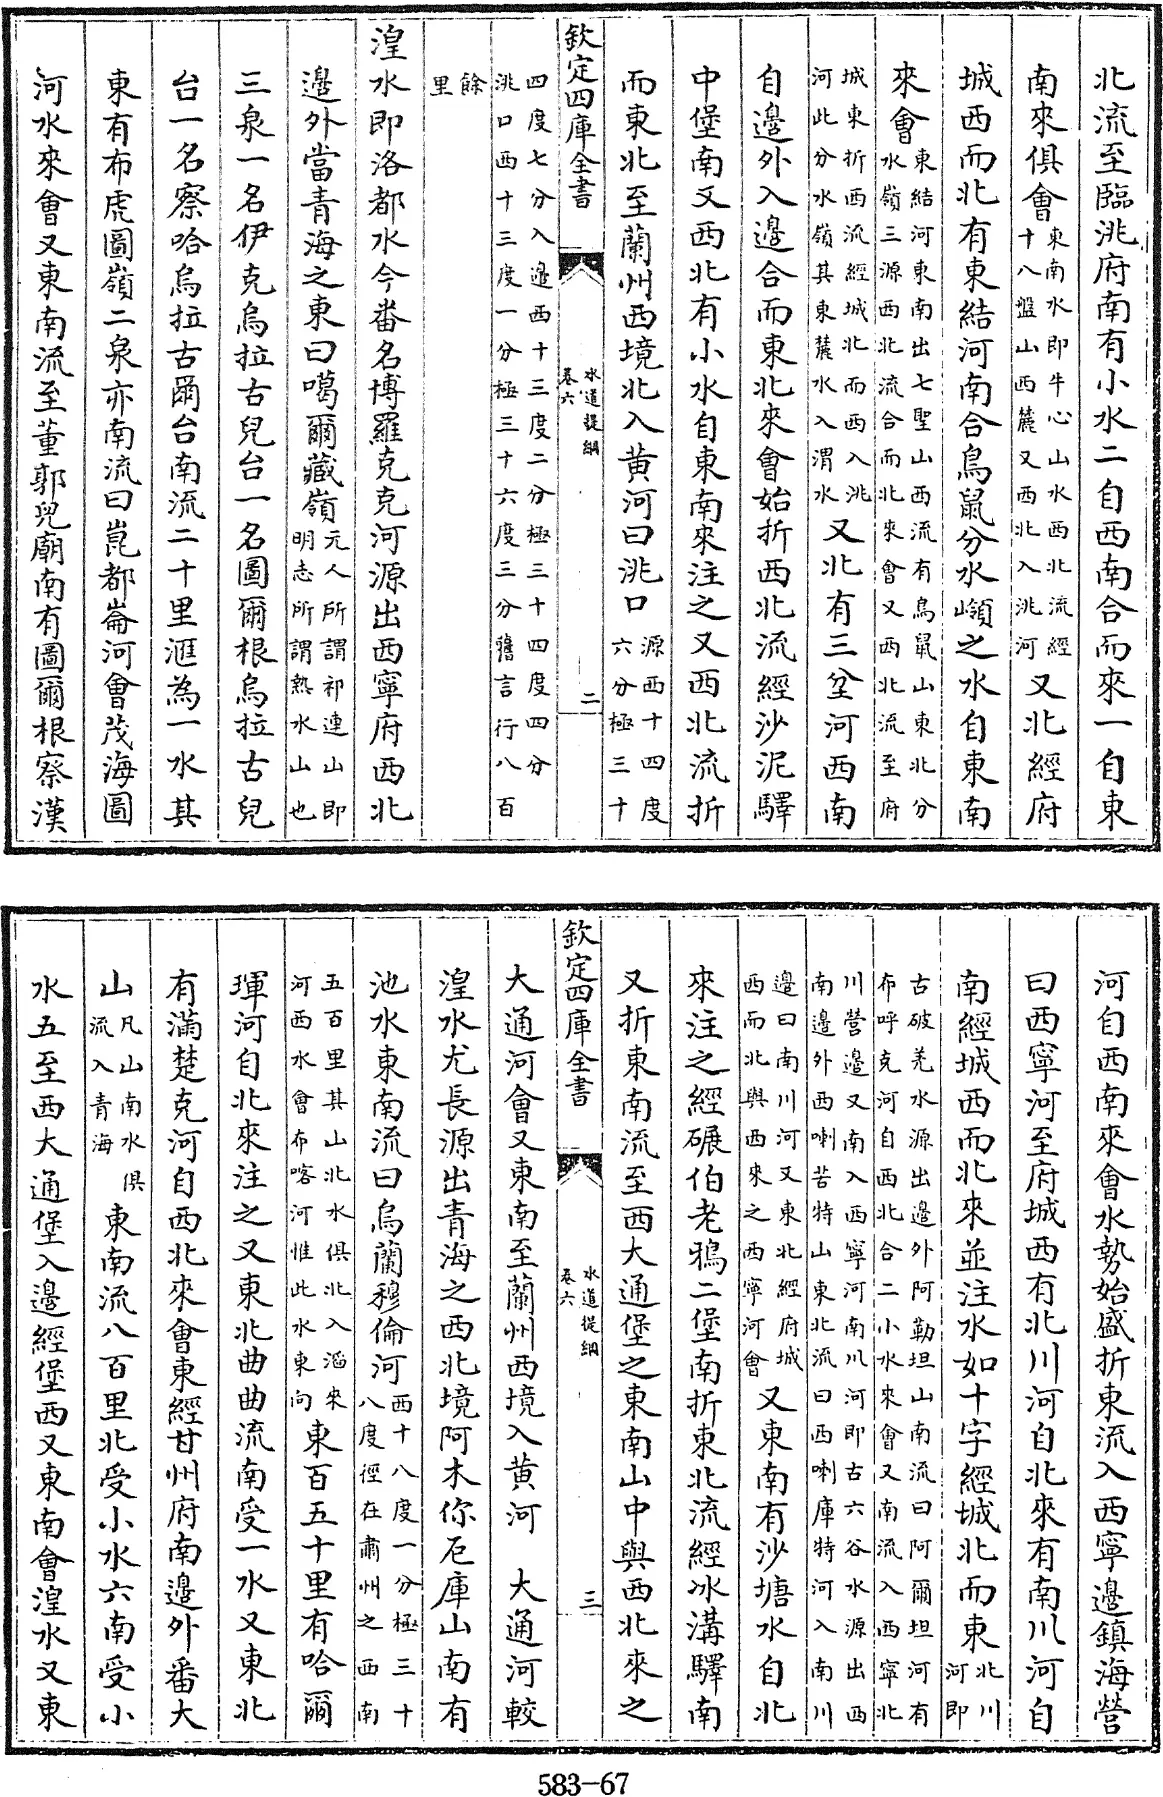 北流至臨洮府南有小水二自西南合而來一自東
南來俱會東南水即牛心山水西北流經十八盤山西麓又西北入洮河又北經府
城西而北有東結河南合鳥鼠分水嶺之水自東南
來會東結河東南出七聖山西流有鳥鼠山東北分水嶺三源西北流合而北來會又西北流至府
城東折西流經城北而西入洮河此分水嶺其東麓水入渭水又北有三岔河西南
自邊外入邊合而東北來會始折西北流經沙泥驛
中堡南又西北有小水自東南來注之又西北流折
而東北至蘭州西境北入黄河曰洮口源西十四度六分極三十
欽定四庫全書
水道提綱
卷六
二
四度七分入邉西十三度二分極三十四度四分洮口西十三度一分極三十六度三分舊言行八百
餘里
湟水即洛都水今番名博羅克克河源出西寧府西北
邊外當青海之東曰噶爾藏嶺元人所謂祁連山即明志所謂熱水山也
三泉一名伊克烏拉古兒台一名圖爾根烏拉古兒
台一名察哈烏拉古爾台南流二十里滙為一水其
東有布虎圖嶺二泉亦南流曰崑都崙河會茂海圖
河水來會又東南流至董郭兒廟南有圖爾根察漢
河自西南來會水勢始盛折東流入西寧邉鎮海營
曰西寧河至府城西有北川河自北來有南川河自
南經城西而北來並注水如十字經城北而東北川河即
古破羌水源出邉外阿勒坦山南流曰阿爾坦河有布呼克河自西北合二小水來會又南流入西寧北
川營邉又南入西寧河南川河即古六谷水源出西南邉外西喇苦特山東北流曰西喇庫特河入南川
邉曰南川河又東北經府城西而北與西來之西寧河會又東南有沙塘水自北
來注之經碾伯老鴉二堡南折東北流經冰溝驛南
又折東南流至西大通堡之東南山中與西北來之
欽定四庫全書
水道提綱
卷六
三
大通河會又東南至蘭州西境入黄河　大通河較
湟水尤長源出青海之西北境阿木你厄庫山南有
池水東南流曰烏蘭穆倫河西十八度一分極三十八度徑在肅州之西南
五百里其山北水俱北入滔來河西水會布喀河惟此水東向東百五十里有哈爾
琿河自北來注之又東北曲曲流南受一水又東北
有滿楚克河自西北來會東經甘州府南邉外番大
山凡山南水俱流入青海東南流八百里北受小水六南受小
水五至西大通堡入邉經堡西又東南會湟水又東
583-67